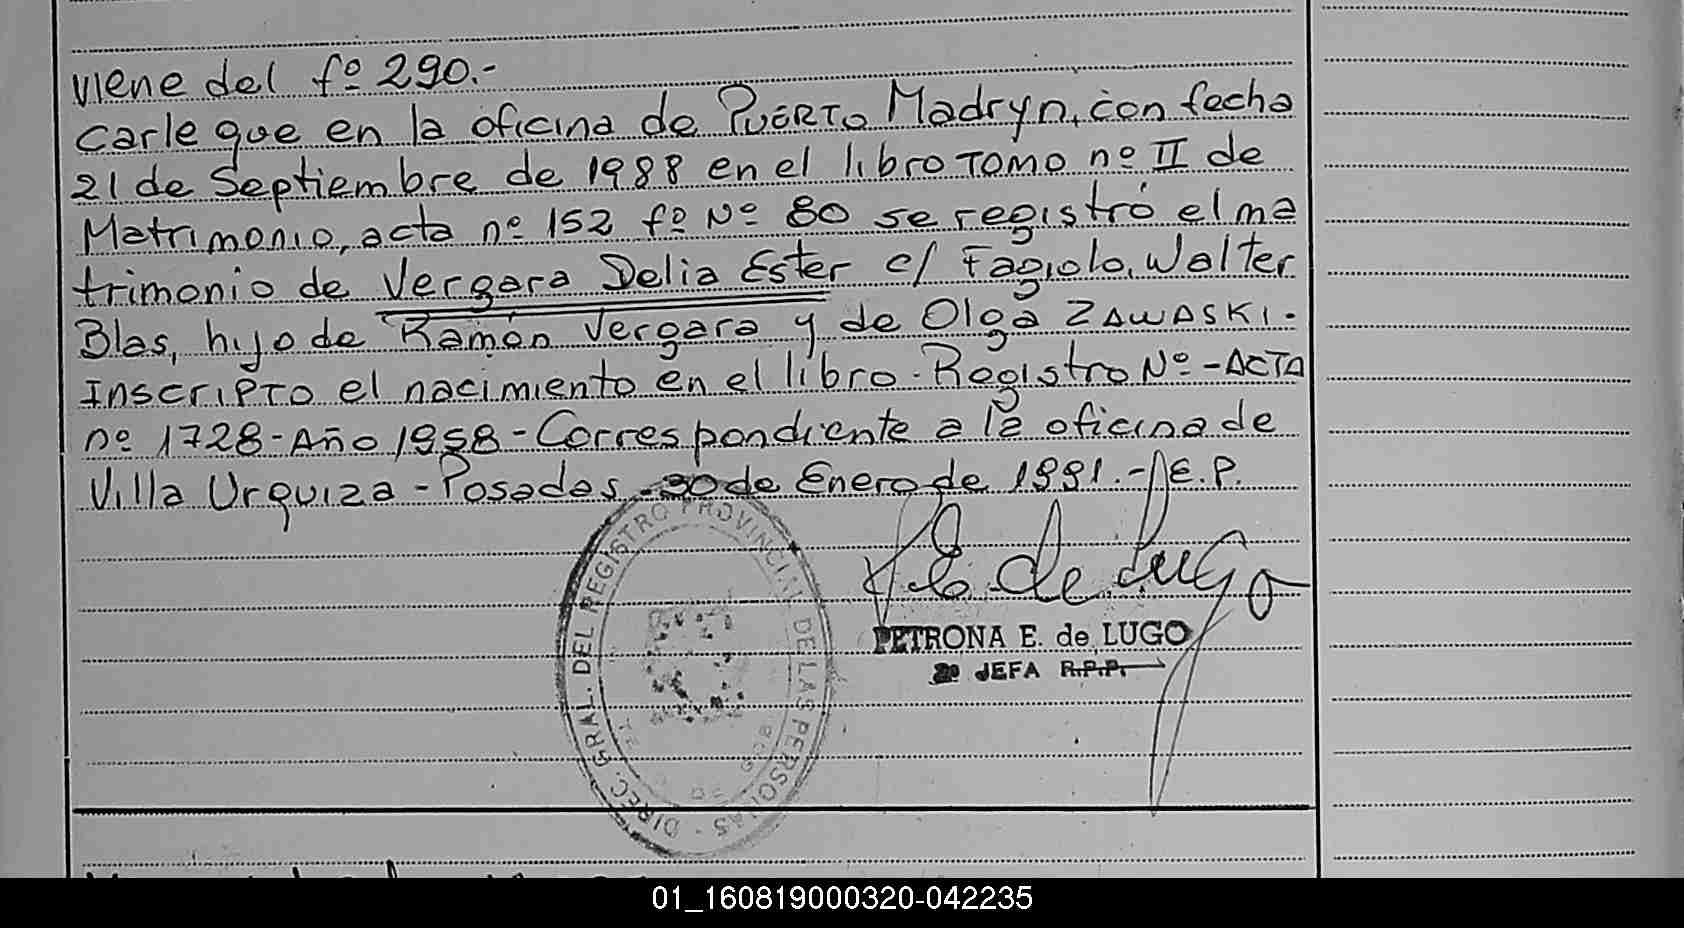 viene del fº 290.-
carle que en la oficina de PUERTO Madryn, con fecha
21 de Septiembre de 1988 en el libro TOMO nº II de
Matrimonio, acta nº 152 fº Nº 80 se registró el ma
trimonio de Vergara Delia Ester c/ Fagiolo, Walter
Blas, hijo de Ramón Vergara y de Olga ZAWASKI.
Inscripto el nacimiento en el libro. Registro Nº - ACTA
nº 1728 - Año 1958 - Correspondiente a la oficina de
Villa Urquiza - Posadas - 30 de Enero de 1991. - E.P.
de Lugo
PETRONA E. de LUGO
JEFA R.P.P.
DIREC. GRAL. DEL REGISTRO PROVINCIAL DE LAS PERSONAS -
01_160819000320-042235